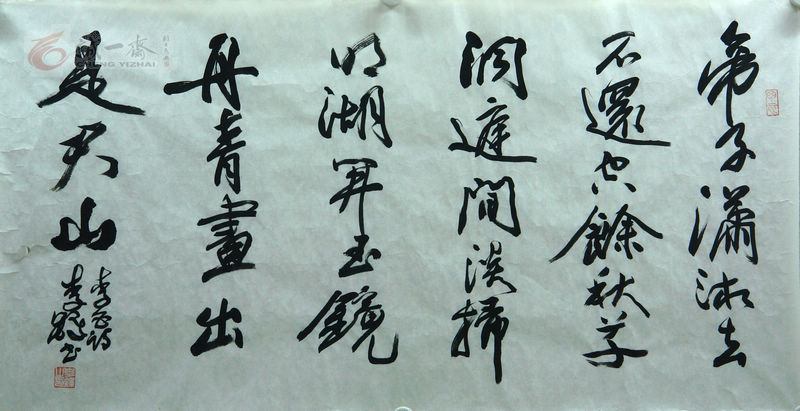 帝子瀟湘去
不還空餘秋草
洞庭間淡掃
明湖開玉鏡
丹青畫出
是君山
李白詩
李書
一齋
YIZHAI